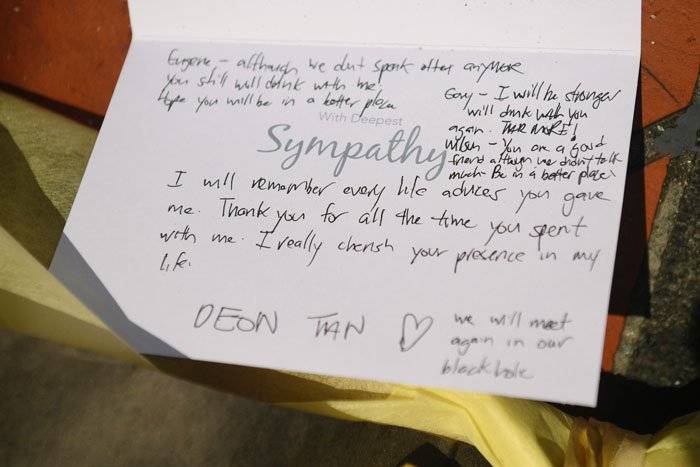 Eugene, - although we dont speak often anymore
you still will drink with me!
Hope you will be in a better place
Gary - I will be stronger
will drink with you
again. THAR MORE!
Wilson - You are a good
friend although we didn't talk
much. Be in a better place
With Deepest
Sympathy
I will remember every life advices you gave
me. Thank you for all the time you spent
with me. I really cherish your presence in my
life.
DEON TAN ♡
we will meet
again in our
blackhole